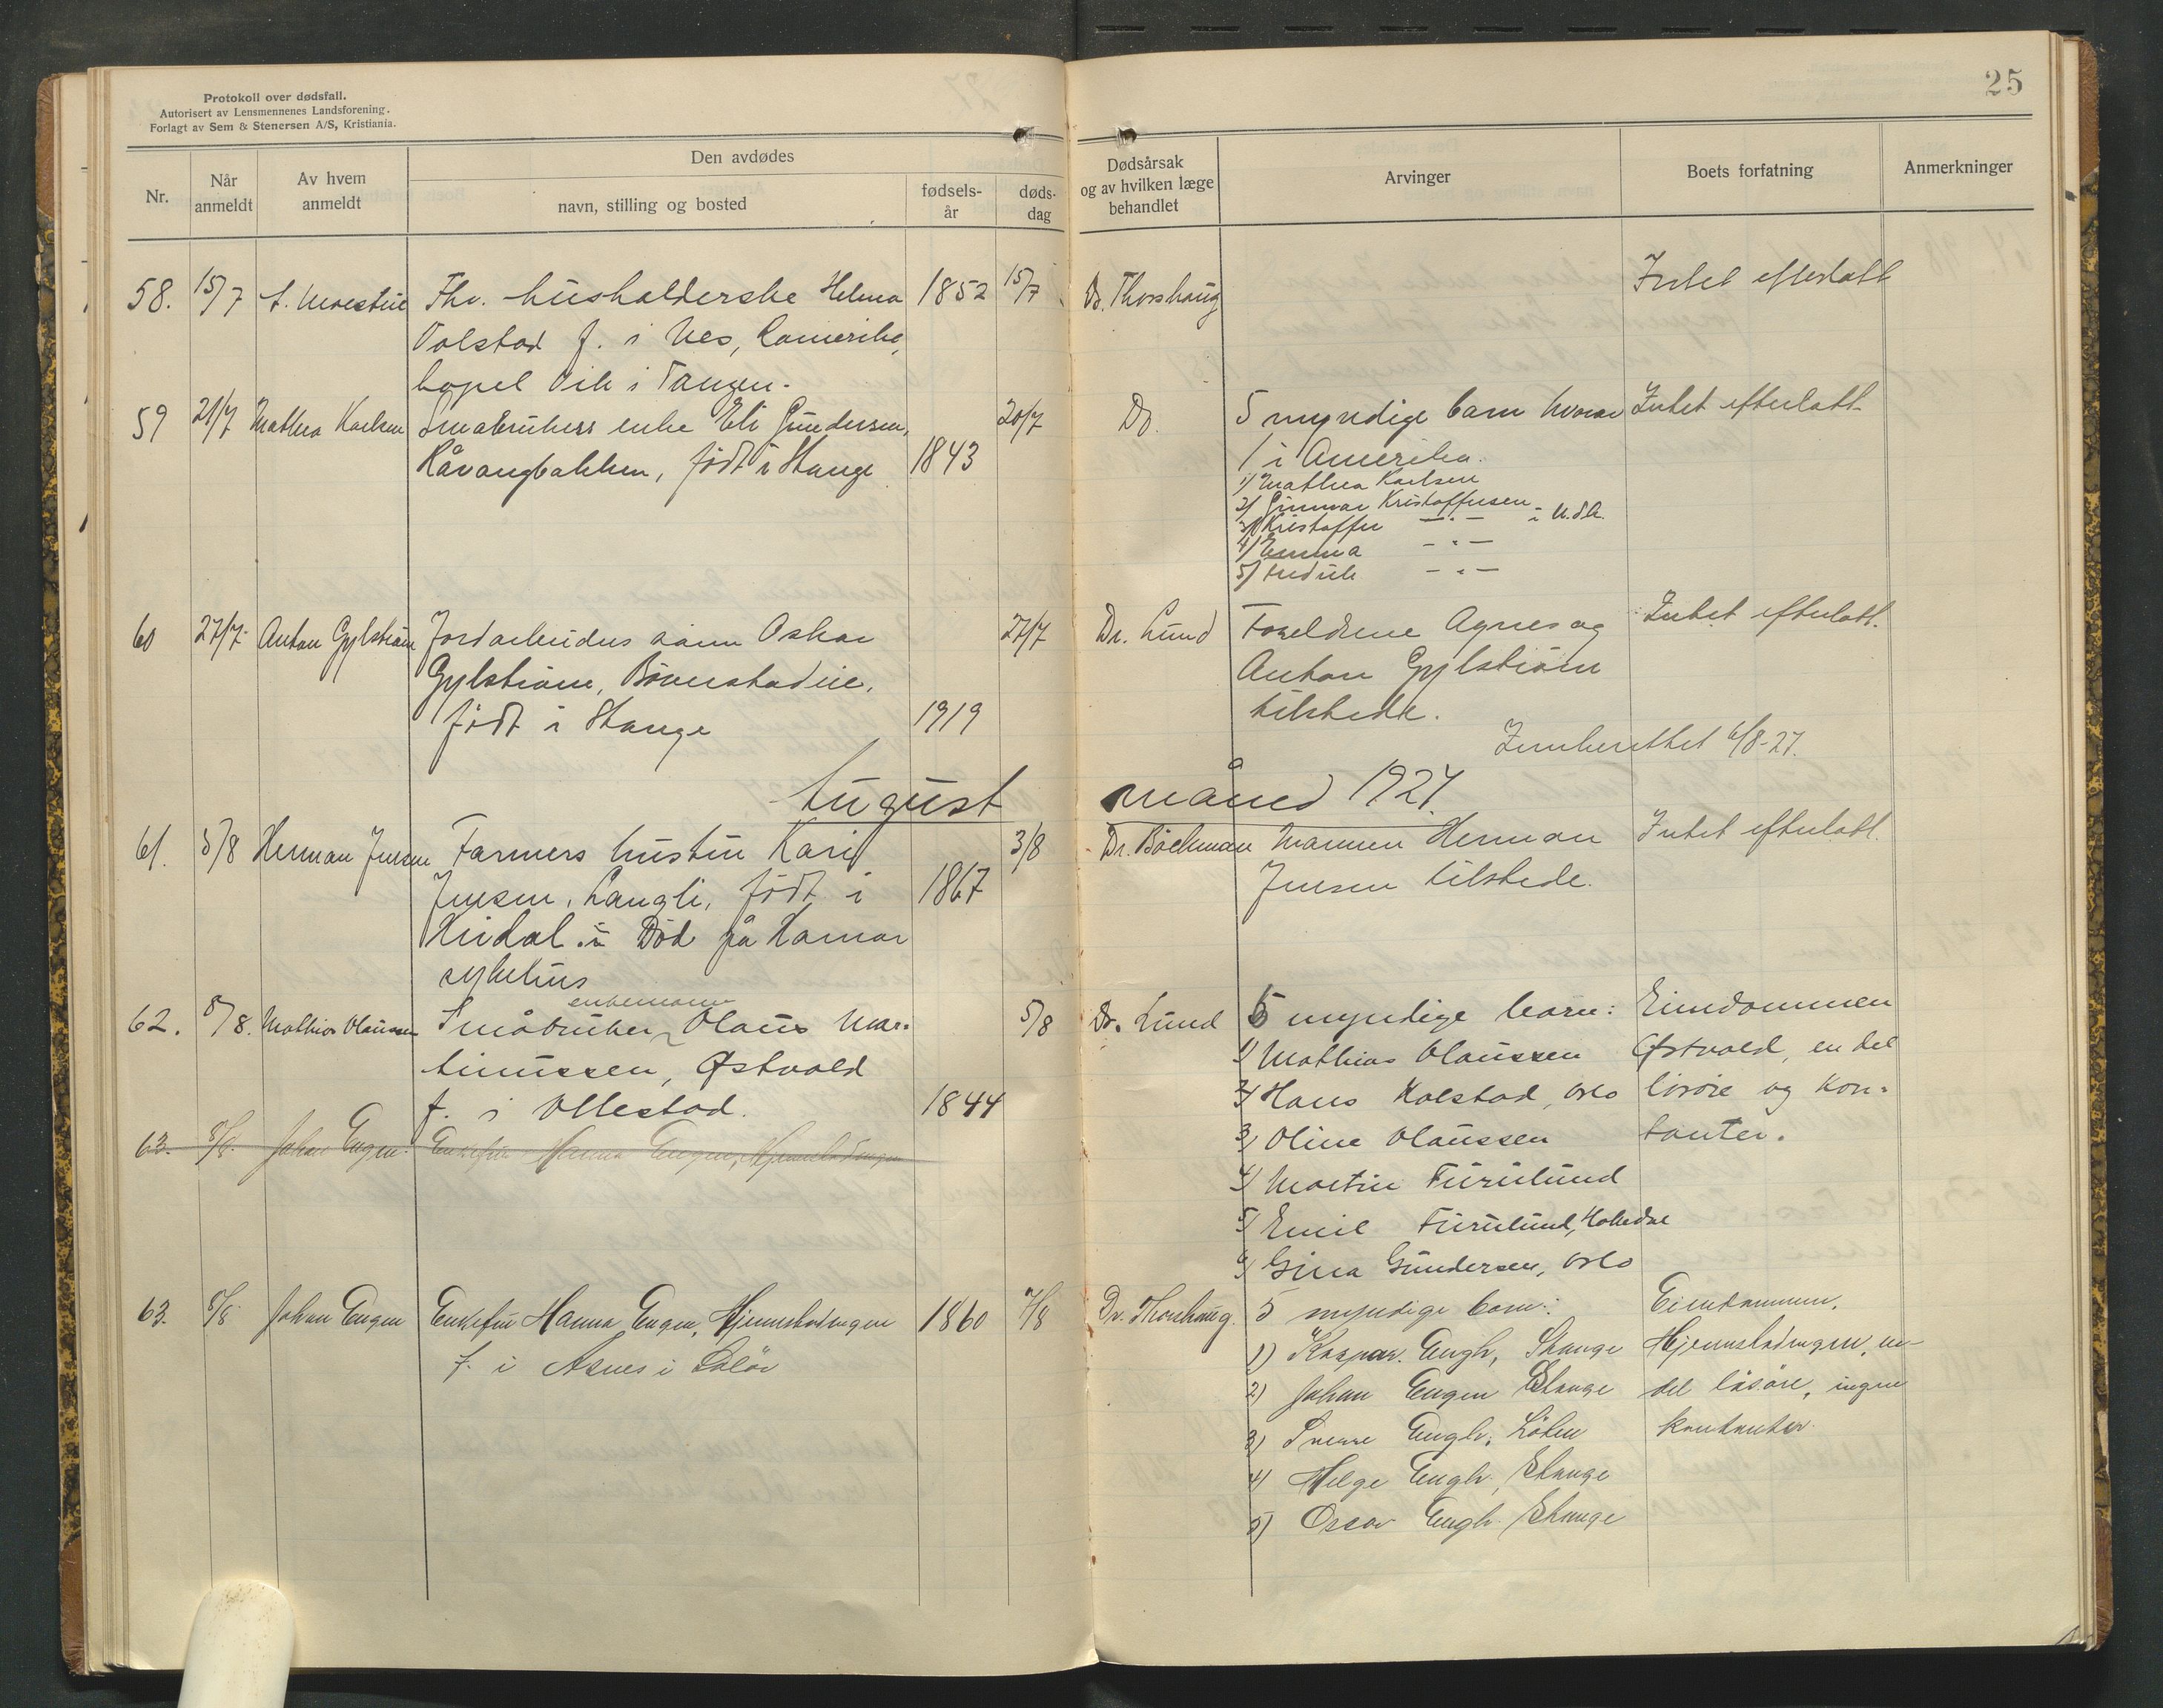 Protokoll over dødsfall.
Autorisert av Lensmennenes Landsforening.
Forlagt av Sem & Stenersen A/S, Kristiania.
25
Nr.
Når anmeldt
Av hvem anmeldt
Den avdødes
navn, stilling og bosted
fødsels-år
døds-dag
Dødsårsak og av hvilken læge behandlet
Arvinger
Boets forfatning
Anmerkninger
58. 15/7 Fhv. husholderske Helma 1852 15/7 Dr. Thorshaug Intet efterlatt
f. i Nes, Romerike,
bopel Vik i Tangen.
59 21/7 Mathea Karlsen Småbrukers enke Eli Gundersen, 20/7 Do. 5 myndige barn hvorav Intet efterlatt
født i Stange 1843 1 i Amerika.
1) Mathea Karlsen
2) Gunnar Kristoffersen
3) Kristoffer —"— i U.S.A.
4) Emma —"—
5) Fredrik —"—
60 27/7 Anton Gylstrøm Jordarbeiders sønn Oskar 27/7 Dr. Lund Foreldrene Agnes og Intet efterlatt.
Gylstrøm, Anton Gylstrøm
født i Stange 1919 tilstede.
Innberettet 6/8-27.
August måned 1927.
61. 5/8 Herman Jensen Farmers hustru Kari 3/8 Dr. Bøckman Mannen Herman Intet efterlatt.
Jensen, Langli, født i 1867 Jensen tilstede.
Død på Hamar
sykehus
enkemann
62. 8/8. Mathias Olaussen Småbruker Olaus Mar- 5/8 Dr. Lund 6 myndige barn: Eiendommen
tinussen, Østvold 1) Mathias Olaussen Østvold, en del
f. i Vllestad. 1844 2) Hans Kolstad, Oslo løsøre og kon-
63. 8/8. Johan Engen Enkefru Hanna Engen, Hjemstadengen 3) Oline Olaussen tanter.
4) Martin Furulund
5) Emil Furulund,
6) Gina Gundersen, Oslo
63. 8/8 Johan Engen Enkefru Hanna Engen, Hjemstadengen 1860 7/8 Dr. Thorshaug. 5 myndige barn: Eiendommen,
f. i Åsnes i Solør 1) Kaspar Engh, Stange Hjemstadengen, en
2) Johan Engen Stange del løsøre, ingen
3) Sverre Engh, Löten kontanter.
4) Helge Engh, Stange
5) Oscar Engh. Stange